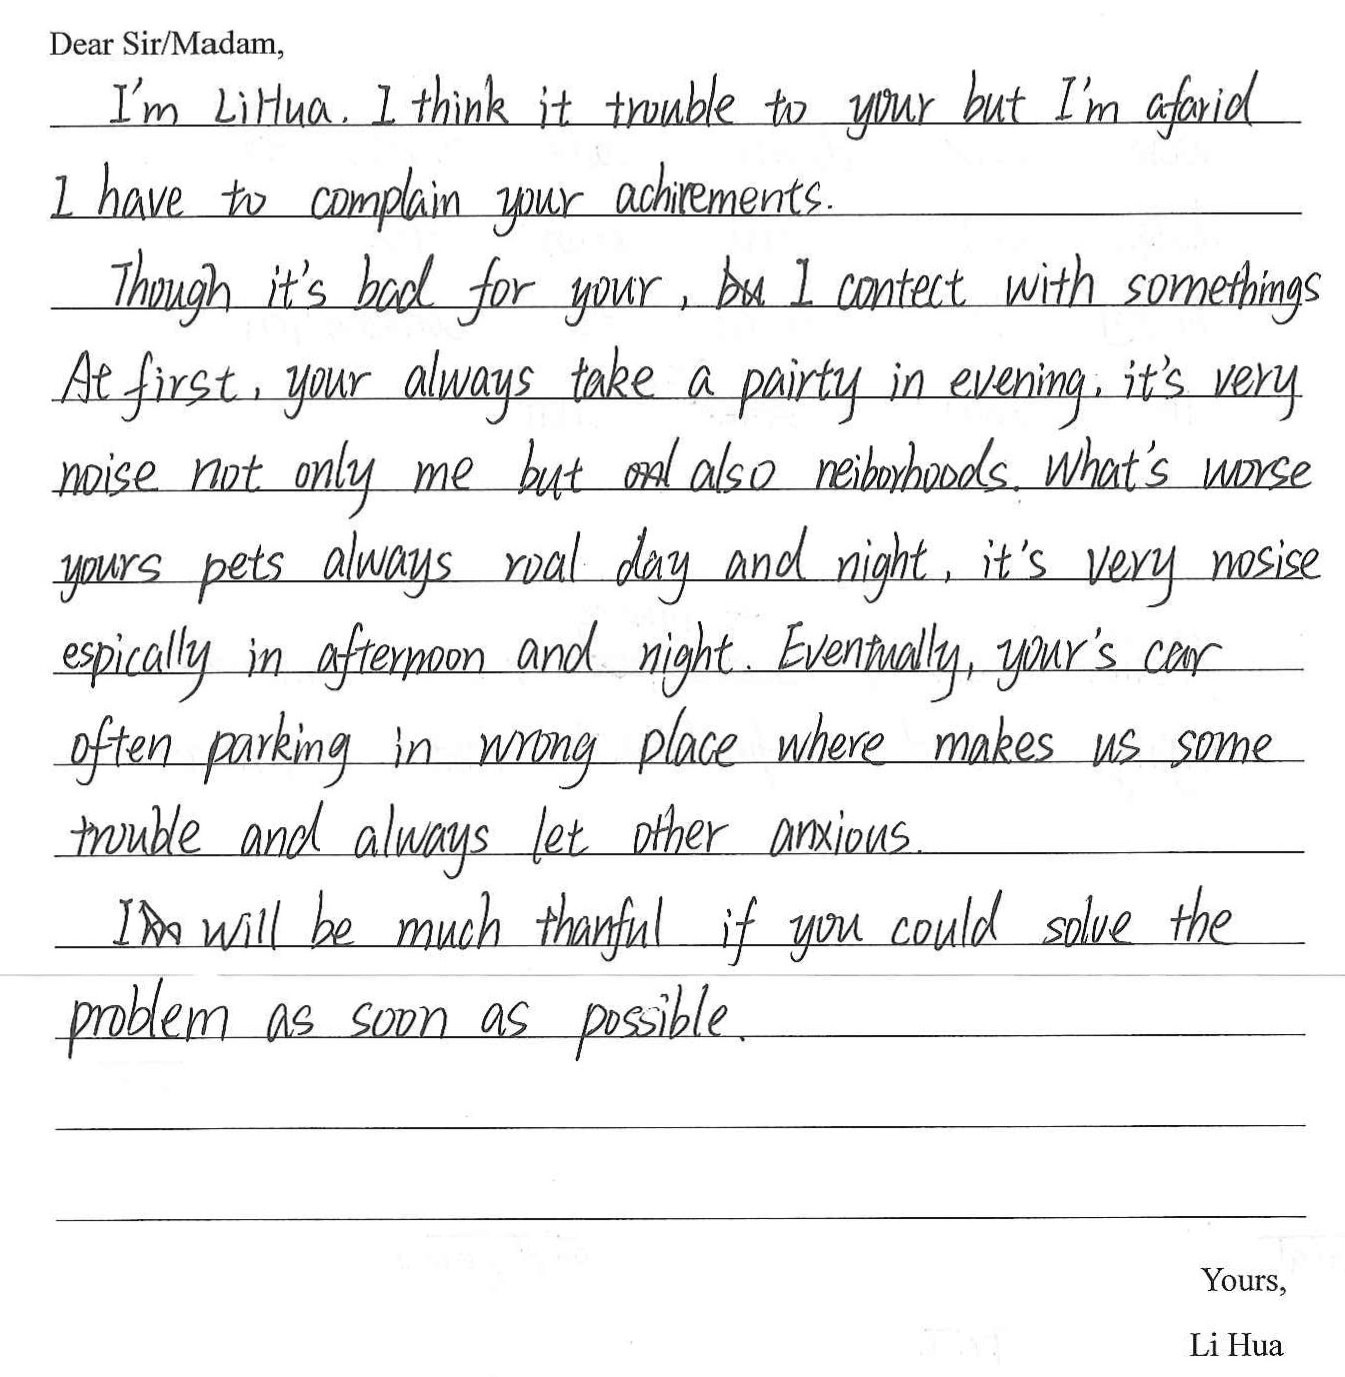 Dear Sir/Madam,
I'm LiHua. I think it trouble to your but I'm afarid
I have to complain your achirements.
Though it's bad for your, I contect with somethings
At first, your always take a pairty in evening. it's very
noise not only me but also neiborhoods. What's worse
yours pets always roal day and night, it's very nosise
espically in afternoon and night. Eventually, your's car
often parking in wrong place where makes us some
trouble and always let other anxious.
I will be much thanful if you could solve the
problem as soon as possible.
Yours,
Li Hua